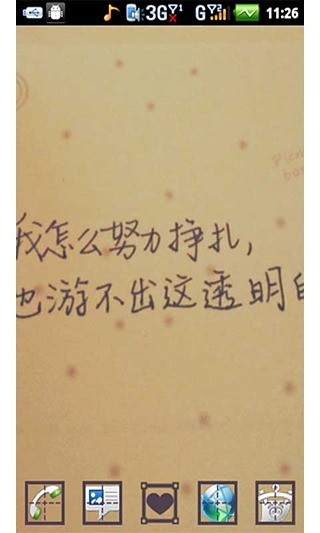 3G 1 G 2 11:26
我怎么努力挣扎，
也游不出这透明